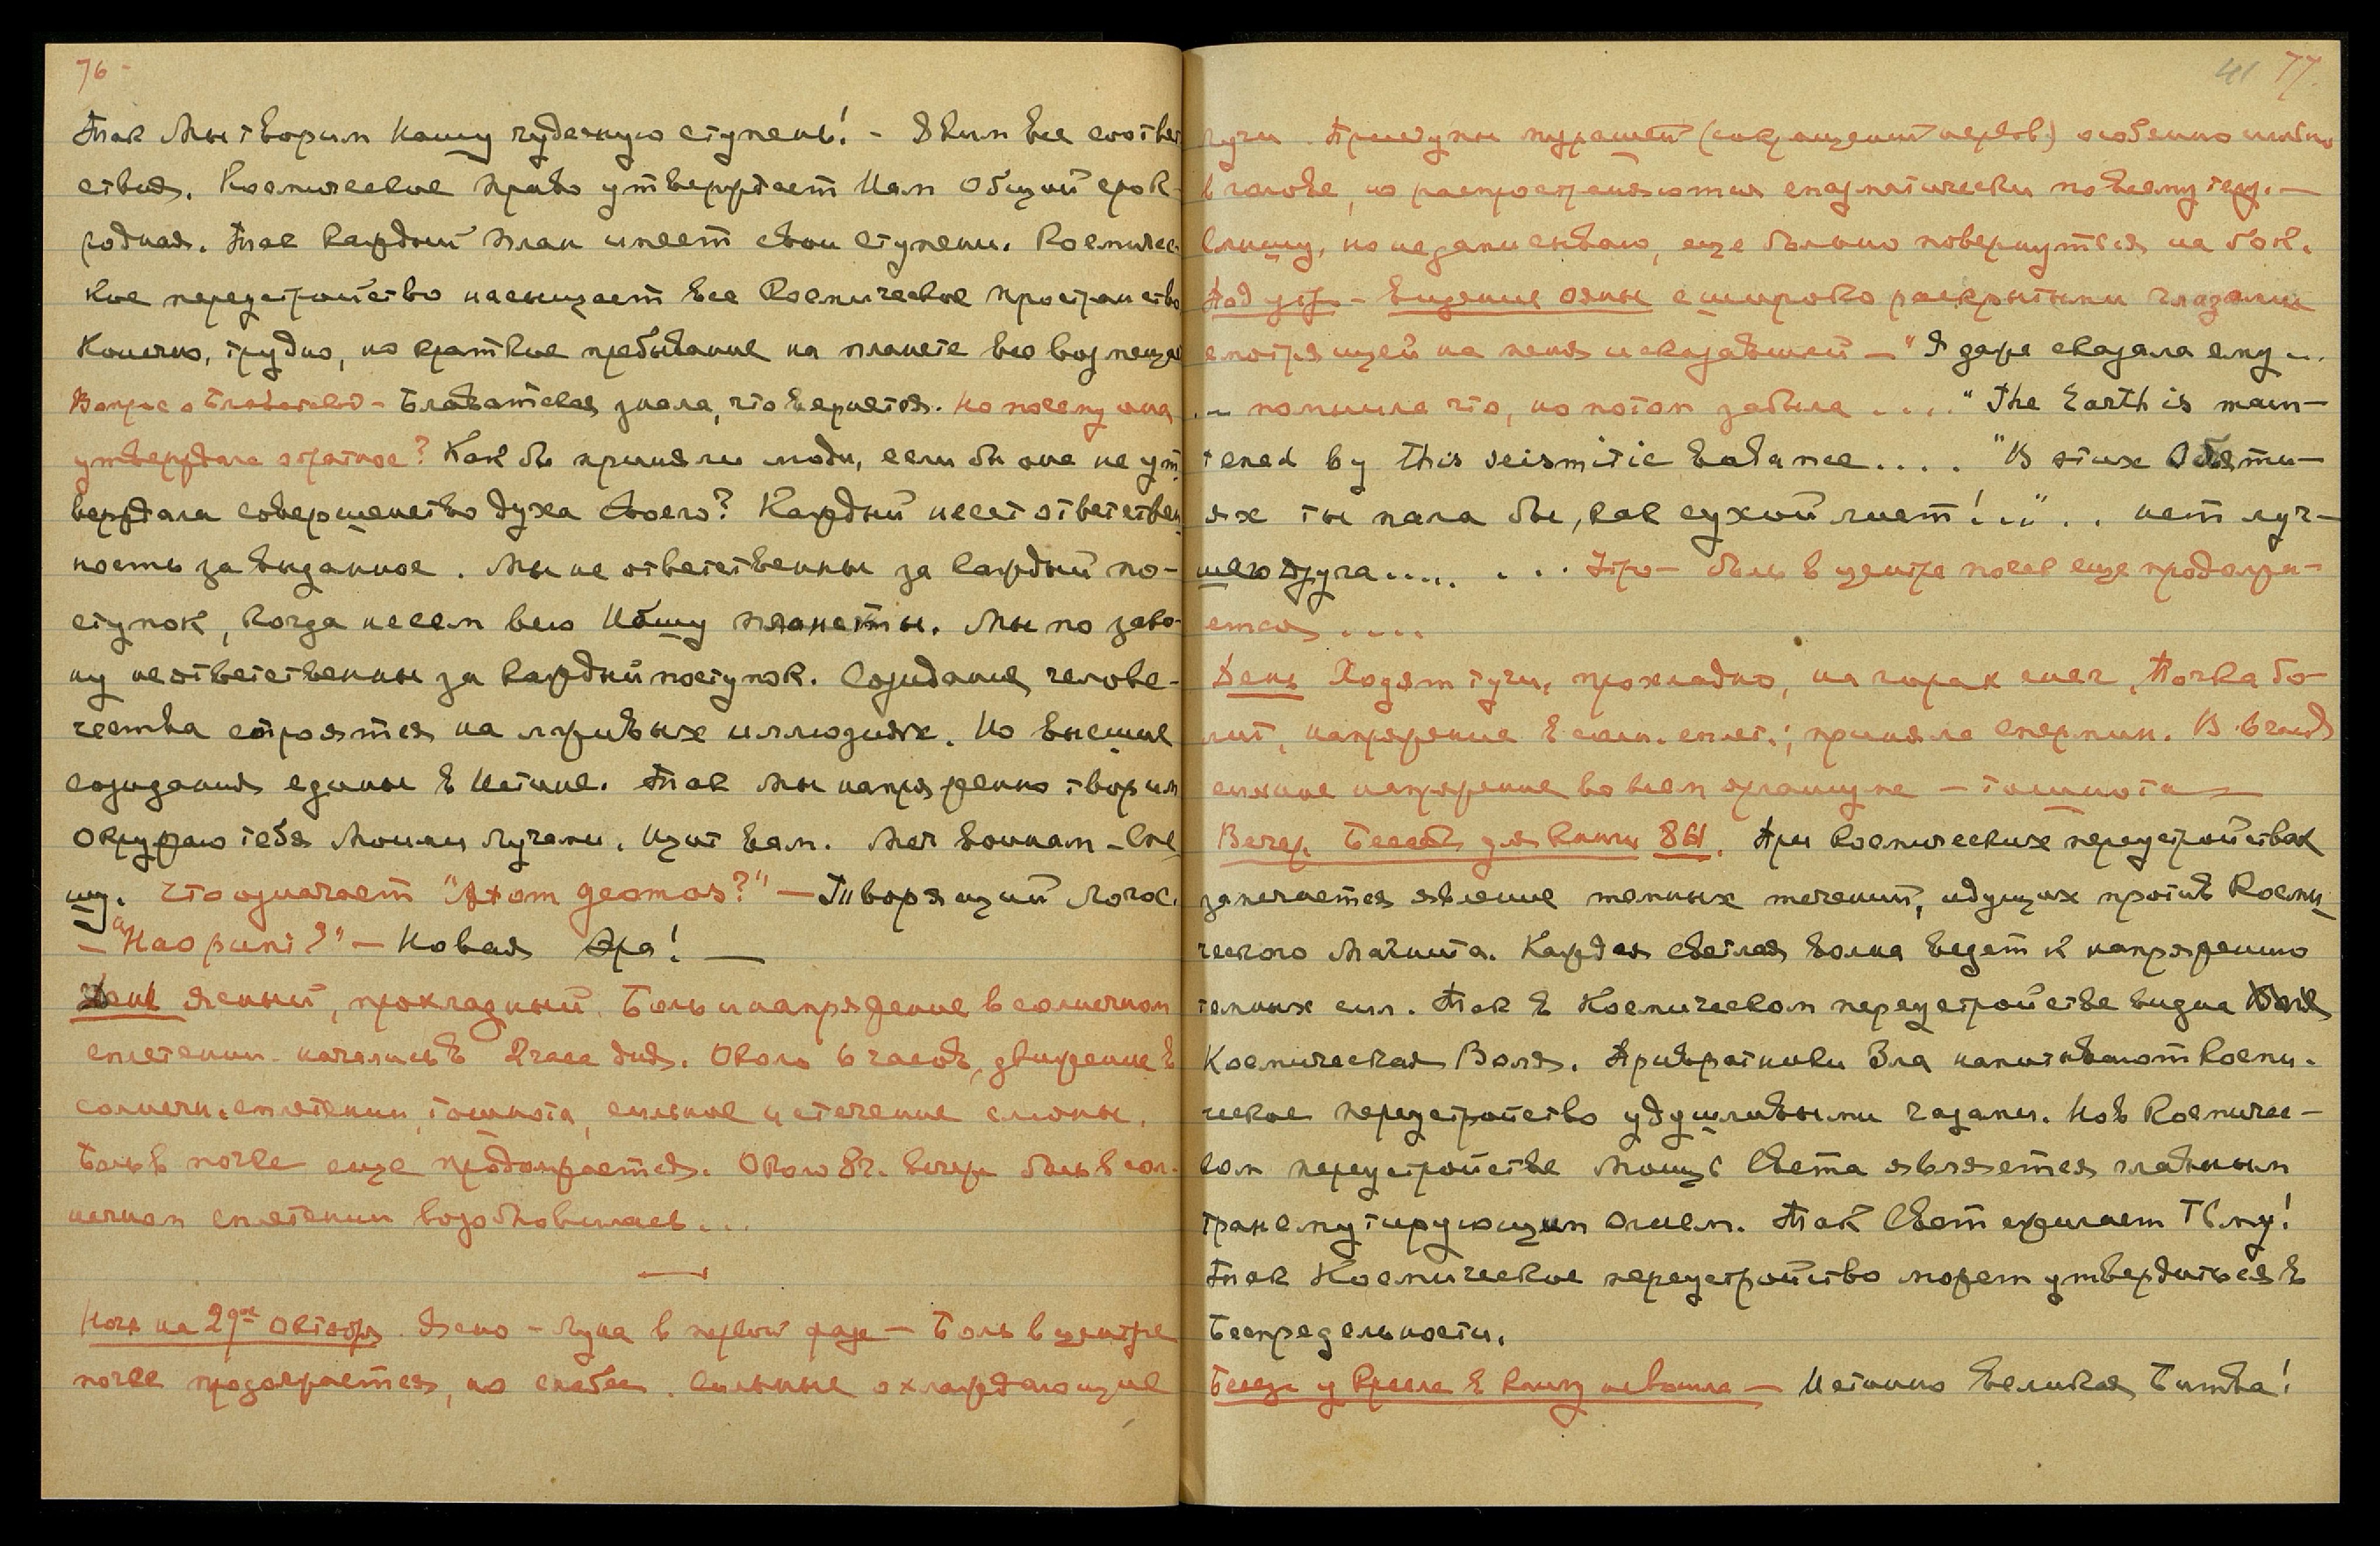 76 -
Так Мы творим Нашу чудесную ступень! - Явим все соответ
ствия. Космическое право утверждает Нам Общий срок
родная. Так каждый план имеет свои ступени. Космичес
кое переустройство насыщает все Космическое пространство
Конечно, трудно, но краткое пребывание на планете все возмещает
Вопрос о Блаватской - Блаватская знала, что вернется. Но почему она
утверждала обратное? Как бы приняли люди, если бы она не ут
верждала совершенство духа своего? Каждый несет ответствен
ность за выданное. Мы не ответственны за каждый по-
ступок, когда несем всю Ношу планеты. Мы по зако-
ну неответственны за каждый поступок. Созидания, челове-
чества строятся на лживых иллюзиях. Но высшие
созидания едины в Истине. Так Мы напряженно творим
Окружаю тебя Моими Лучами. Щит вам. Меч воинам - Спе
шу. Что означает "Atom geomov?" - Творящий Логос.
- "Hao puni?" - Новая Эра! —
День ясный, прохладный. Боль и напряжение в солнечном
сплетении начались в 2 часа дня. Около 6 часов, движение в
солнечн. сплетении, тошнота, сильное истечение слюны.
Боль в почке еще продолжается. Около 8 ч. вечера боль в сол-
нечном сплетении возобновилась...
Ночь на 29ое Октября. Ясно - Луна в первой фазе - Боль в центре
почек продолжается, но слабее. Сильные охлаждающие
41 77.
лучи. Приступы мурашей (сокращений нервов) особенно сильно
в голове, но распространяются спазматически по всему телу. —
Слышу, но не записываю, еще больно повернуться на бок.
Под утро - Видение Ояны с широко раскрытыми глазами
смотрящей на меня и сказавшей — "Я даже сказала ему ...
... помнила что, но потом забыла . . . . " The Earth is main-
tened by this seismitic balance. . . . "В этих Объяти-
ях ты пала бы, как сухой лист! .." . . нет луч-
шего друга..... . . . Утро - боль в центре почек еще продолжа-
ется ....
День Ходят тучи, прохладно, на горах снег, Почка бо-
лит, напряжение в солн. сплет.; приняла спермин. В 6 часов
сильное напряжение во всем организме - тошнота —
Вечер. Беседа для книги 861. При Космических переустройствах
замечается явление темных течений, идущих против Косми
ческого Магнита. Каждая светлая волна ведет к напряжению
темных сил. Так в Космическом переустройстве видна
Космическая Воля. Привратники Зла напитывают косми-
ческое переустройство удушливыми газами. Но в Космичес-
ком переустройстве Мощь Света является главным
трансмутирующим огнем. Так Свет сжигает Тьму!
Так Космическое переустройство может утвердиться в
Беспредельности.
Беседа у Кресла в книгу не вошла — Истинно Великая Битва!